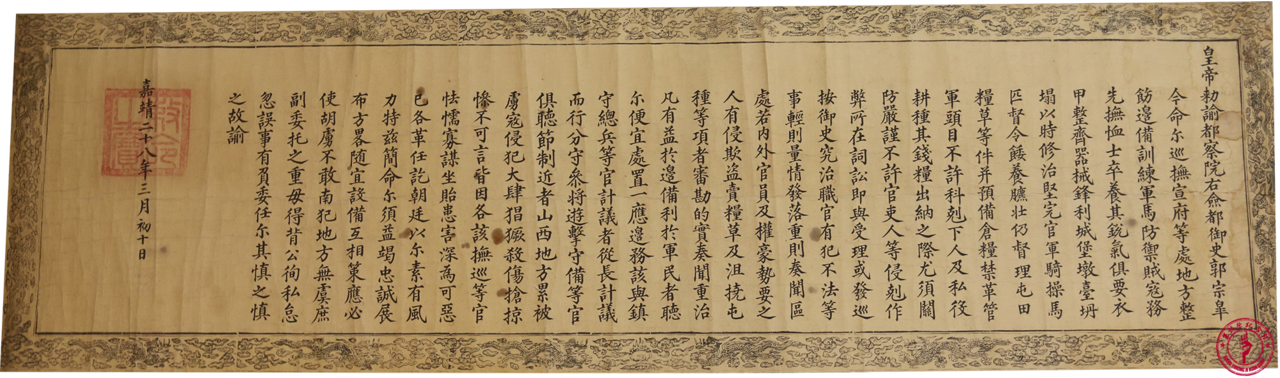 皇帝勅諭都察院右僉都御史郭宗皋
今命尔巡撫宣府等處地方整
飭邊備訓練軍馬防禦賊寇務
先撫恤士卒養其銳氣俱要衣
甲整齊器械鋒利城堡墩臺坍
塌以時修治堅完官軍騎操馬
匹督令餧養膘壯仍督理屯田
糧草等件并預備倉糧禁革管
軍頭目不許科剋下人及私役
耕種其錢糧出納之際尤須關
防嚴謹不許官吏人等侵剋作
弊所在詞訟即與受理或發巡
按御史究治職官有犯不法等
事輕則量情發落重則奏聞區
處若內外官員及權豪勢要之
人有侵欺盜賣糧草及沮撓屯
種等項者審勘的實奏聞重治
凡有益於邊備利於軍民者聽
尔便宜處置一應邊務該與鎮
守總兵等官計議者從長計議
而行分守叅將遊擊守備等官
俱聽節制近者山西地方累被
虜寇侵犯大肆猖獗殺傷搶掠
慘不可言皆因各該撫巡等官
怯懦寡謀坐貽患害深為可惡
已各革任訖朝廷以尔素有風
力特茲簡命尔須益竭忠誠展
布方畧隨宜設備互相策應必
使胡虜不敢南犯地方無虞庶
副委托之重毋得背公徇私怠
忽誤事有負委任尔其慎之慎
之故諭
嘉靖二十八年三月初十日